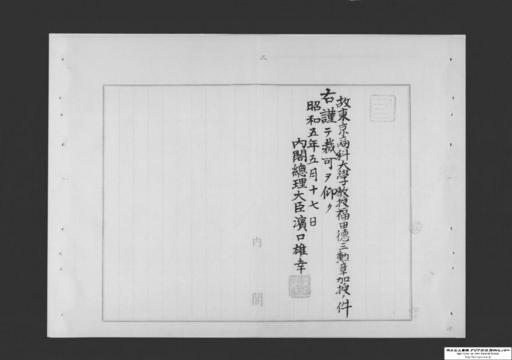 故東京商科大學教授福田徳三勲章加授ノ件
右謹テ裁可ヲ仰ク
昭和五年五月十七日
内閣總理大臣濱口雄幸
内閣